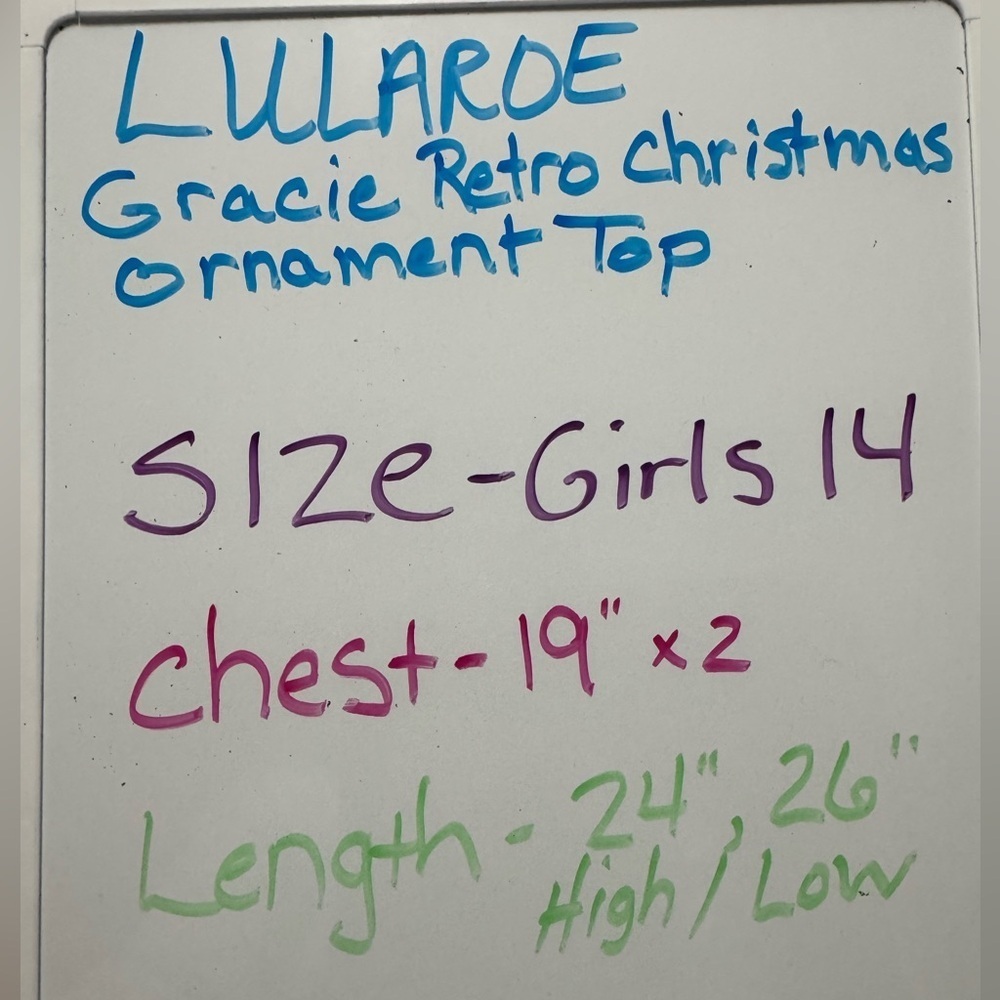 LULAROE
Gracie Retro Christmas
Ornament Top
SIZe-Girls 14
Chest-19" x2
Length - 24", 26"
High/Low